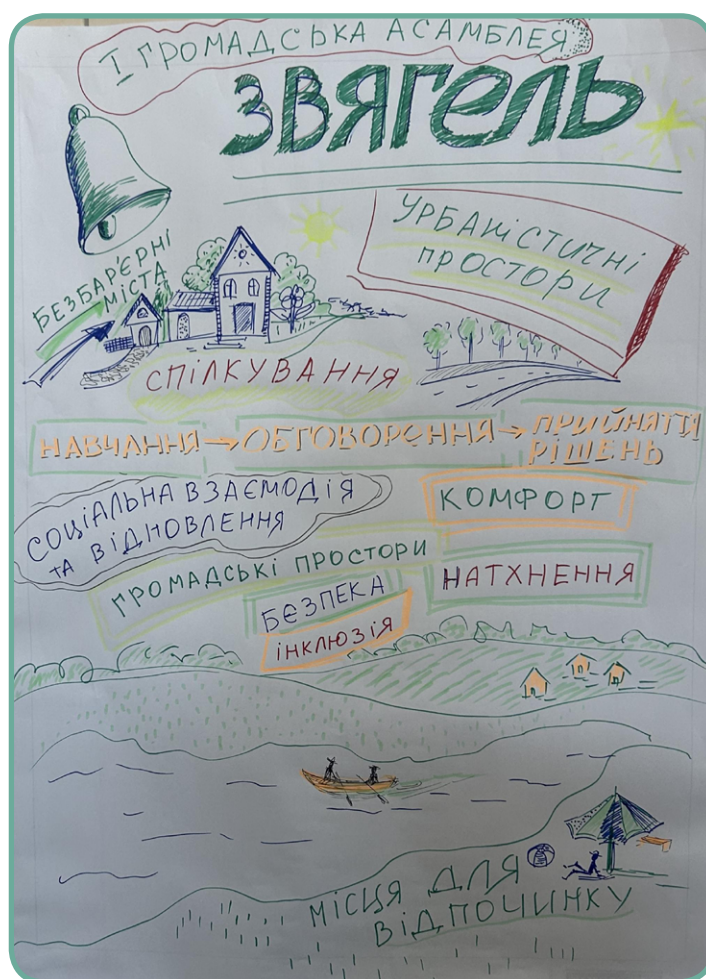 І ГРОМАДСЬКА АСАМБЛЕЯ
ЗВЯГЕЛЬ
УРБАНІСТИЧНІ
ПРОСТОРИ
БЕЗБАР'ЄРНІ
МІСТА
СПІЛКУВАННЯ
НАВЧАННЯ → ОБГОВОРЕННЯ → ПРИЙНЯТТЯ
РІШЕНЬ
СОЦІАЛЬНА ВЗАЄМОДІЯ
ТА ВІДНОВЛЕННЯ
КОМФОРТ
ГРОМАДСЬКІ ПРОСТОРИ
НАТХНЕННЯ
БЕЗПЕКА
ІНКЛЮЗІЯ
МІСЦЯ ДЛЯ
ВІДПОЧИНКУ